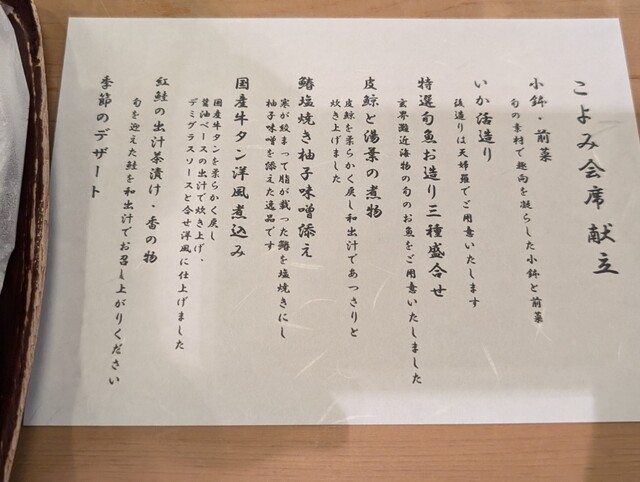 こよみ会席 献立
小鉢・前菜
旬の素材で趣向を凝らした小鉢と前菜
いか活造り
後造りは天婦羅でご用意いたします
特選旬魚お造り三種盛合せ
玄界灘近海物の旬のお魚をご用意いたしました
皮鯨と湯葉の煮物
皮鯨を柔らかく戻し和出汁であっさりと
炊き上げました
鰆塩焼き柚子味噌添え
寒が絞まって脂が載った鰆を塩焼きにし
柚子味噌を添えた逸品です
国産牛タン洋風煮込み
国産牛タンを柔らかく戻し
醤油ベースの出汁で炊き上げ・
デミグラスソースと合せ洋風に仕上げました
紅鮭の出汁茶漬け・香の物
旬を迎えた鮭を和出汁でお召し上がりください
季節のデザート